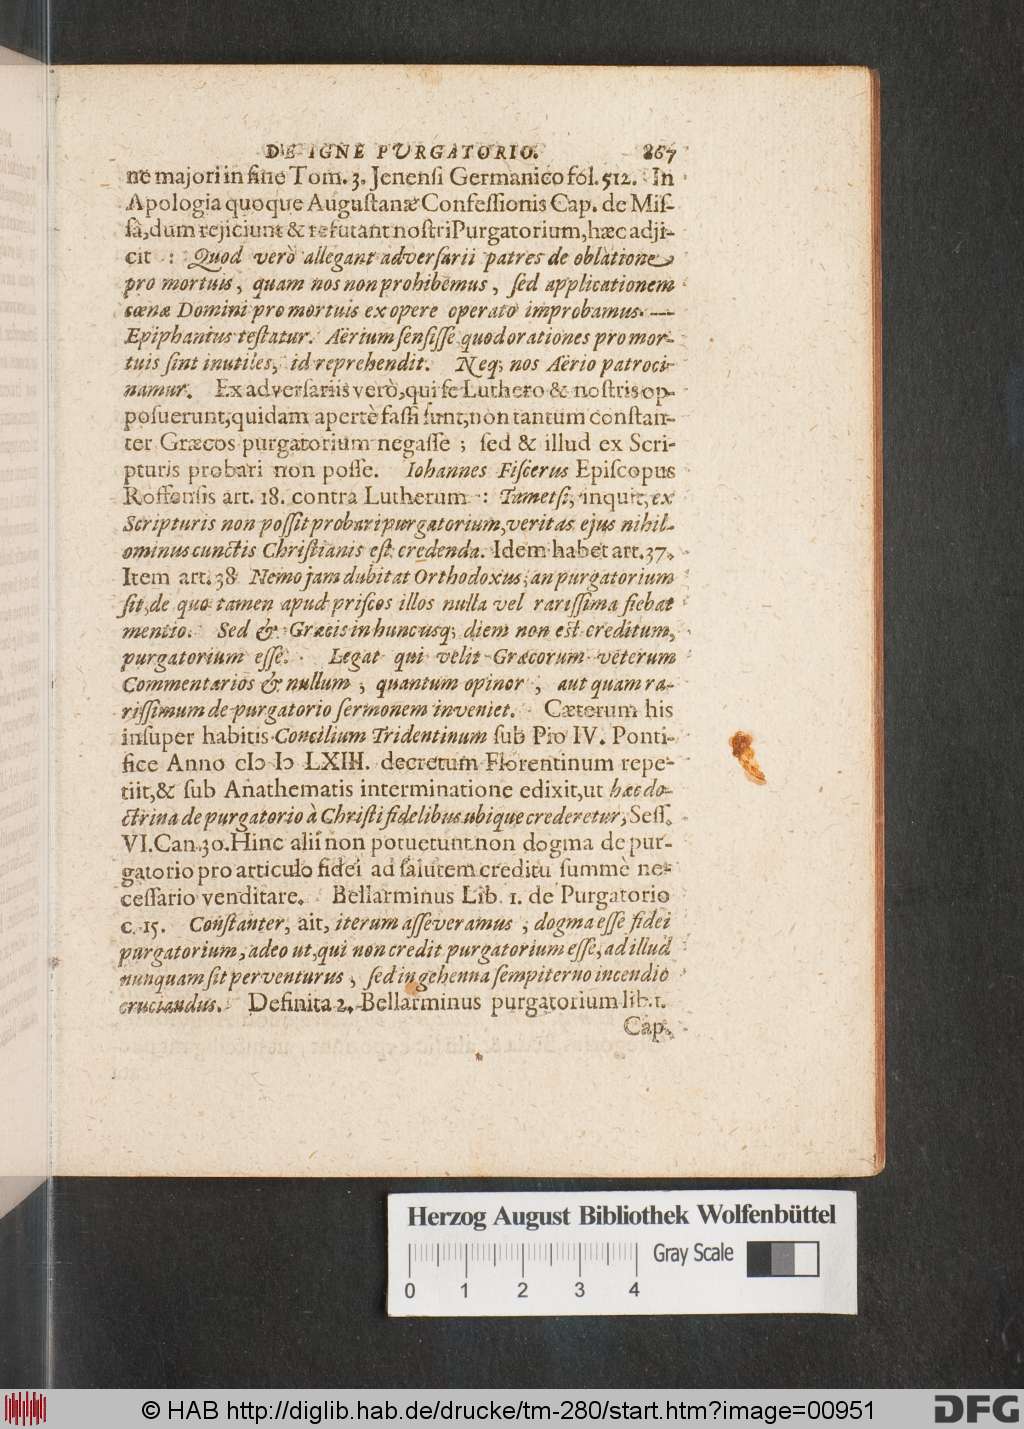 DE IGNE PURGATORIO. 867
ne majori in fine Tom. 3. Jenensi Germanico fol. 512. In
Apologia quoque Augustanæ Confessionis Cap. de Mis-
sâ, dum rejiciunt & refutant nostri Purgatorium, hæc adji-
cit : Quod verò allegant adversarii patres de oblatione
pro mortuis, quam nos non prohibemus, sed applicationem
cœnæ Domini pro mortuis ex opere operato improbamus. —
Epiphanius testatur. Aërium sensisse quod orationes pro mor-
tuis sint inutiles, id reprehendit. Neq; nos Aërio patroci-
namur. Ex adversariis verò, qui se Luthero & nostris op-
posuerunt, quidam apertè fassi sunt, non tantum constan-
ter Græcos purgatorium negasse ; sed & illud ex Scri-
pturis probari non posse. Iohannes Fiscerus Episcopus
Roffensis art. 18. contra Lutherum : Tametsi, inquit, ex
Scripturis non possit probari purgatorium, veritas ejus nihil-
ominus cunctis Christianis est credenda. Idem habet art. 37.
Item art. 38 Nemo jam dubitat Orthodoxus, an purgatorium
sit, de quo tamen apud priscos illos nulla vel rarissima fiebat
mentio. Sed & Græcis in huncusq; diem non est creditum,
purgatorium esse. Legat qui velit Græcorum veterum
Commentarios & nullum, quantum opinor, aut quam ra-
rissimum de purgatorio sermonem inveniet. Cæterum his
insuper habitis Concilium Tridentinum sub Pio IV. Ponti-
fice Anno cIↄ Iↄ LXIII. decretum Florentinum repe-
tiit, & sub Anathematis interminatione edixit, ut hæc do-
ctrina de purgatorio à Christi fidelibus ubique crederetur, Sess.
VI. Can. 30. Hinc alii non potuerunt non dogma de pur-
gatorio pro articulo fidei ad salutem creditu summè ne-
cessario venditare. Bellarminus Lib. 1. de Purgatorio
c. 15. Constanter, ait, iterum asseveramus, dogma esse fidei
purgatorium, adeo ut, qui non credit purgatorium esse, ad illud
nunquam sit perventurus, sed in gehenna sempiterno incendio
cruciandus. Definita 2. Bellarminus purgatorium lib. 1.
Cap.
Herzog August Bibliothek Wolfenbüttel
Gray Scale
0 1 2 3 4
© HAB http://diglib.hab.de/drucke/tm-280/start.htm?image=00951
DFG